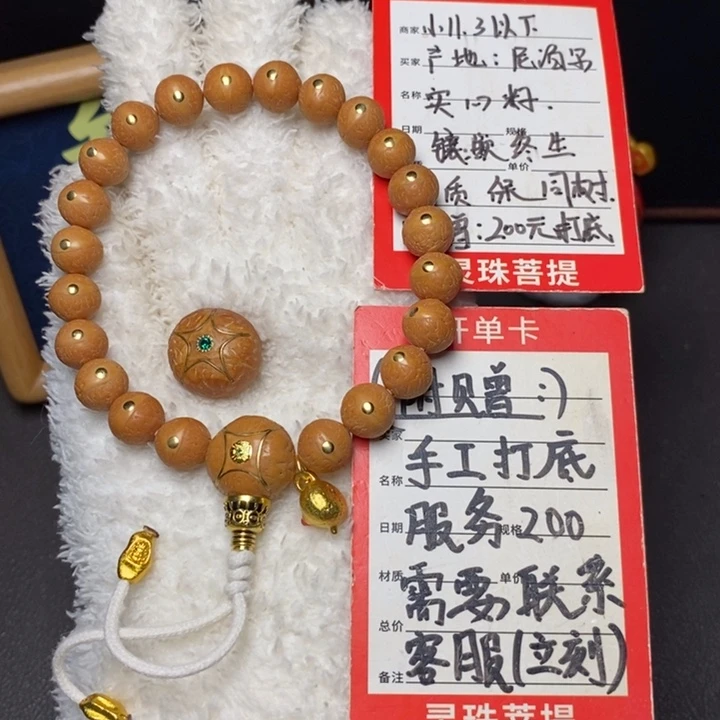 商家 小11.3以下
买家 产地：尼泊尔
名称 实心籽.
日期 规格 镶嵌终生
单价
质保 同树.
:200元打底
灵珠菩提
开单卡
(附贝赠:)
买家
名称 手工打底
日期 服务 规格 200
材质 需要 单价 联系
总价
备注 客服(立刻)
灵珠菩提